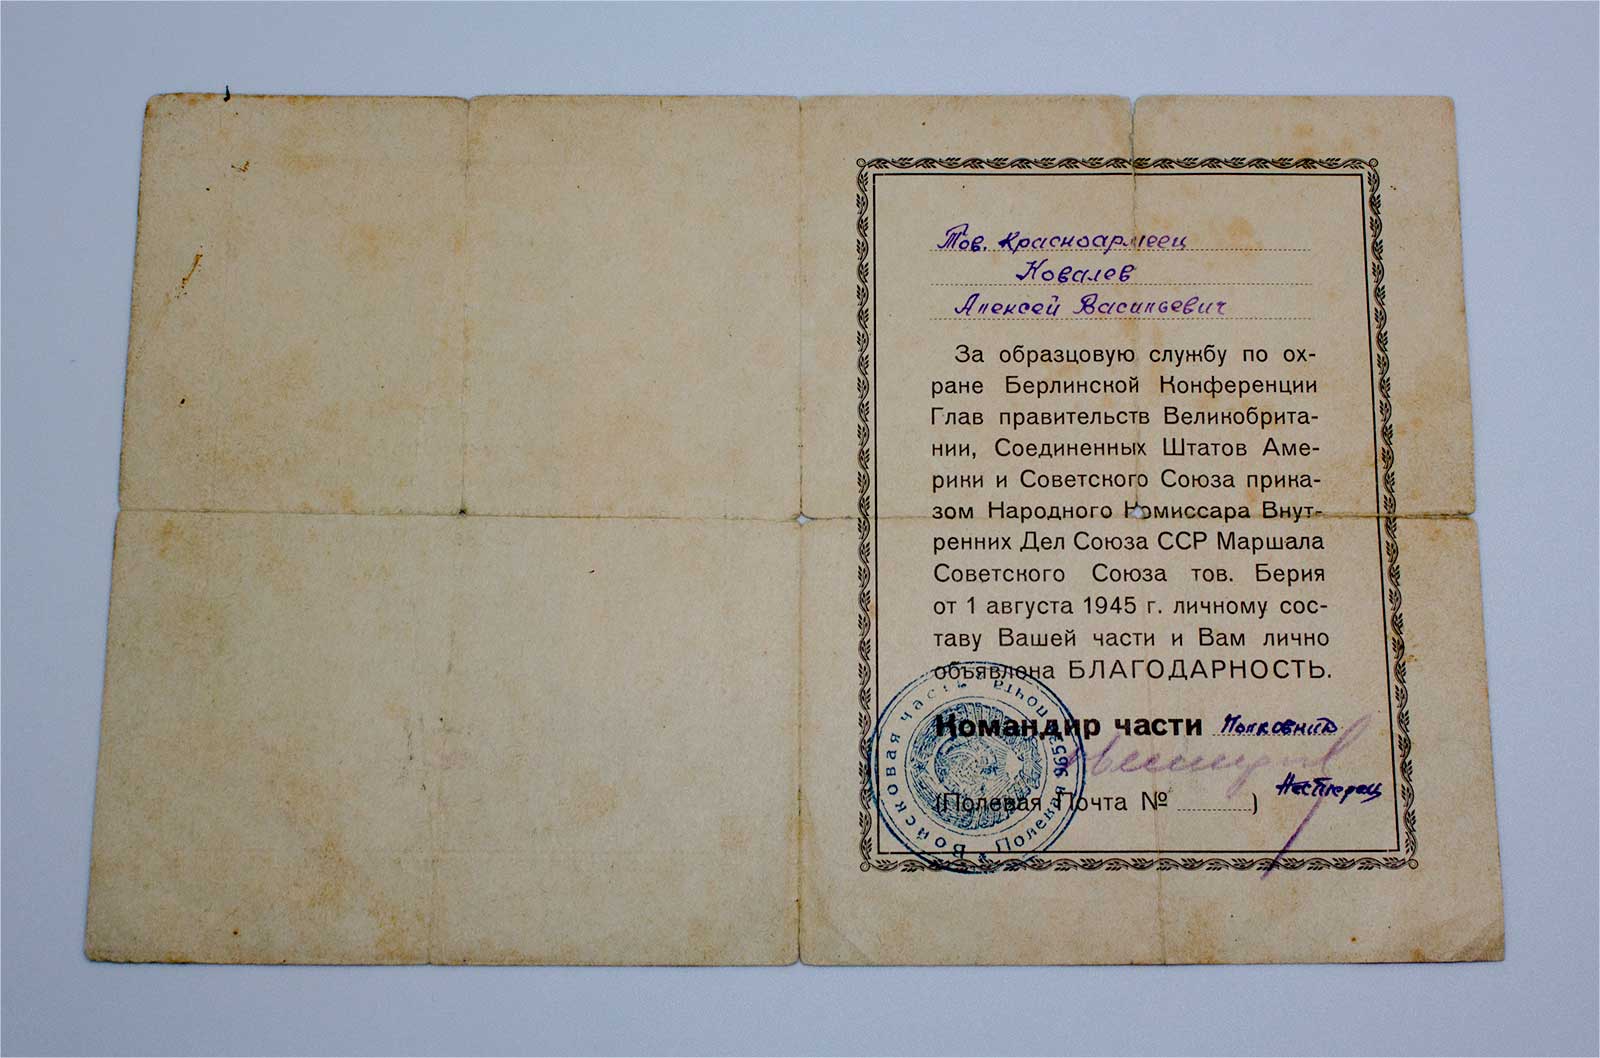 Тов. Красноармеец
Ковалев
Алексей Васильевич
За образцовую службу по ох-
ране Берлинской Конференции
Глав правительств Великобрита-
нии, Соединенных Штатов Аме-
рики и Советского Союза прика-
зом Народного Комиссара Внут-
ренних Дел Союза ССР Маршала
Советского Союза тов. Берия
от 1 августа 1945 г. личному сос-
таву Вашей части и Вам лично
объявлена БЛАГОДАРНОСТЬ.
Командир части Полковник
(Полевая Почта № )
Войсковая часть Полевая почта